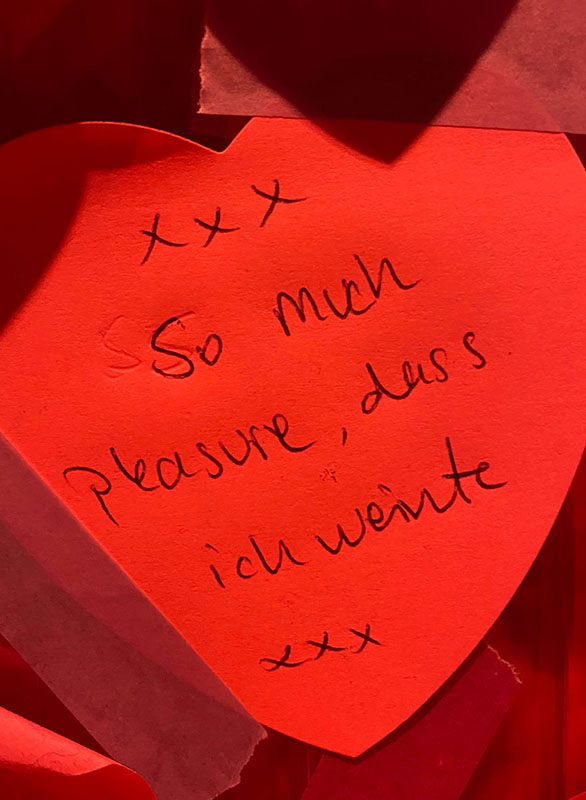 xxx
So much
pleasure, dass
ich weinte
xxx